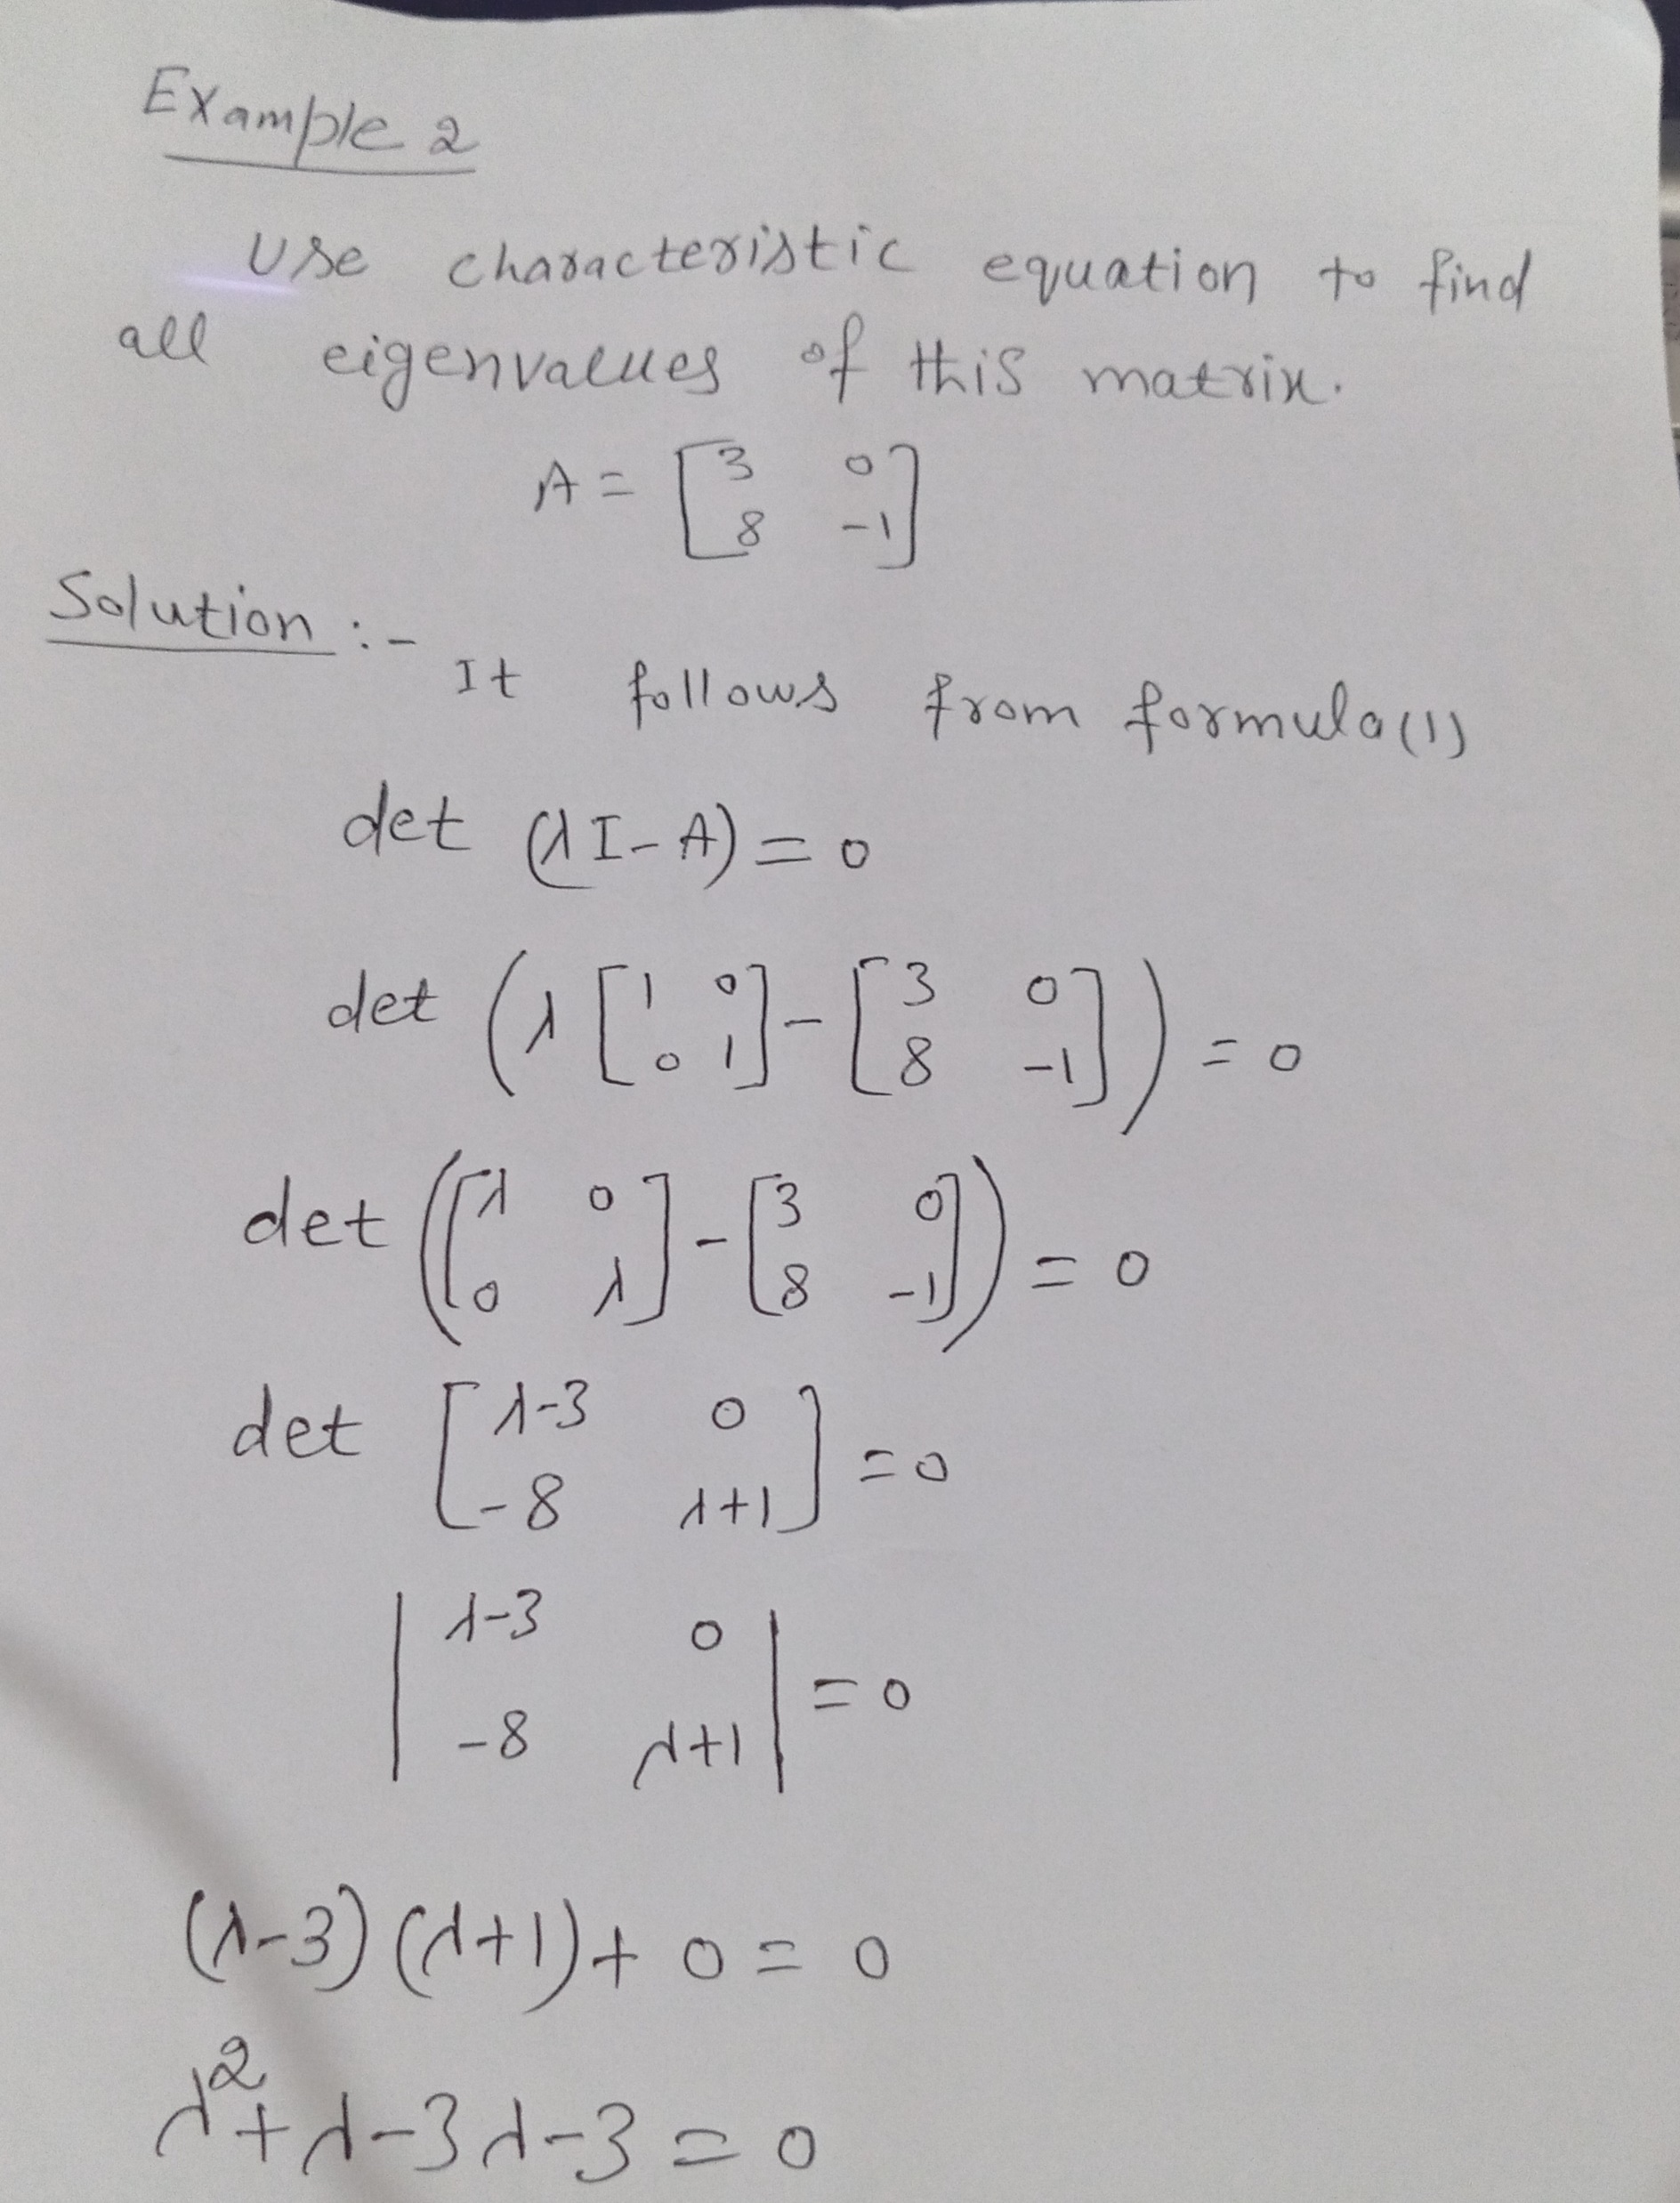 Example 2
Use characteristic equation to find
all eigenvalues of this matrix.
A = [3 0
8 -1]
Solution :-
It follows from formula (1)
det (λI - A) = 0
det (λ [1 0
0 1] - [3 0
8 -1]) = 0
det ([λ 0
0 λ] - [3 0
8 -1]) = 0
det [λ-3 0
-8 λ+1] = 0
|λ-3 0
-8 λ+1| = 0
(λ-3)(λ+1) + 0 = 0
λ² + λ - 3λ - 3 = 0